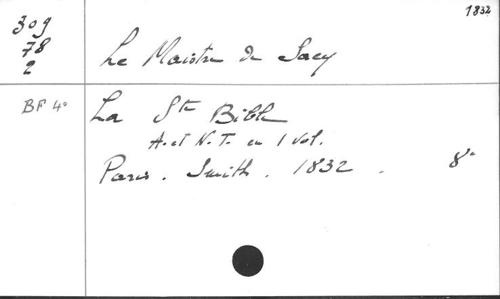 1832
309
78
2
Le Maistre de Sacy
BF 4°
La Ste Bible
A. et N. T. en 1 vol.
Paris. Smith. 1832. 8°